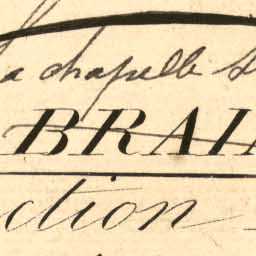 a chapelle s
BRAI
ction